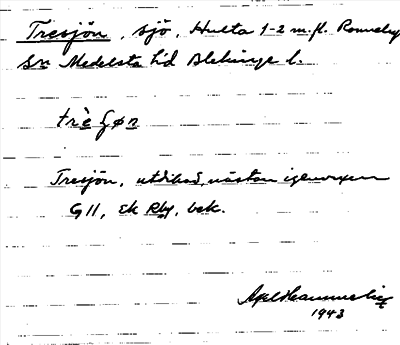 Tresjön, sjö, Hulta 1-2 m.fl. Ronneby
sn Medelsta hd Blekinge l.
Tresjön, utdikad, nästan igenvuxen
G11, Ek Rby, bek.
1943